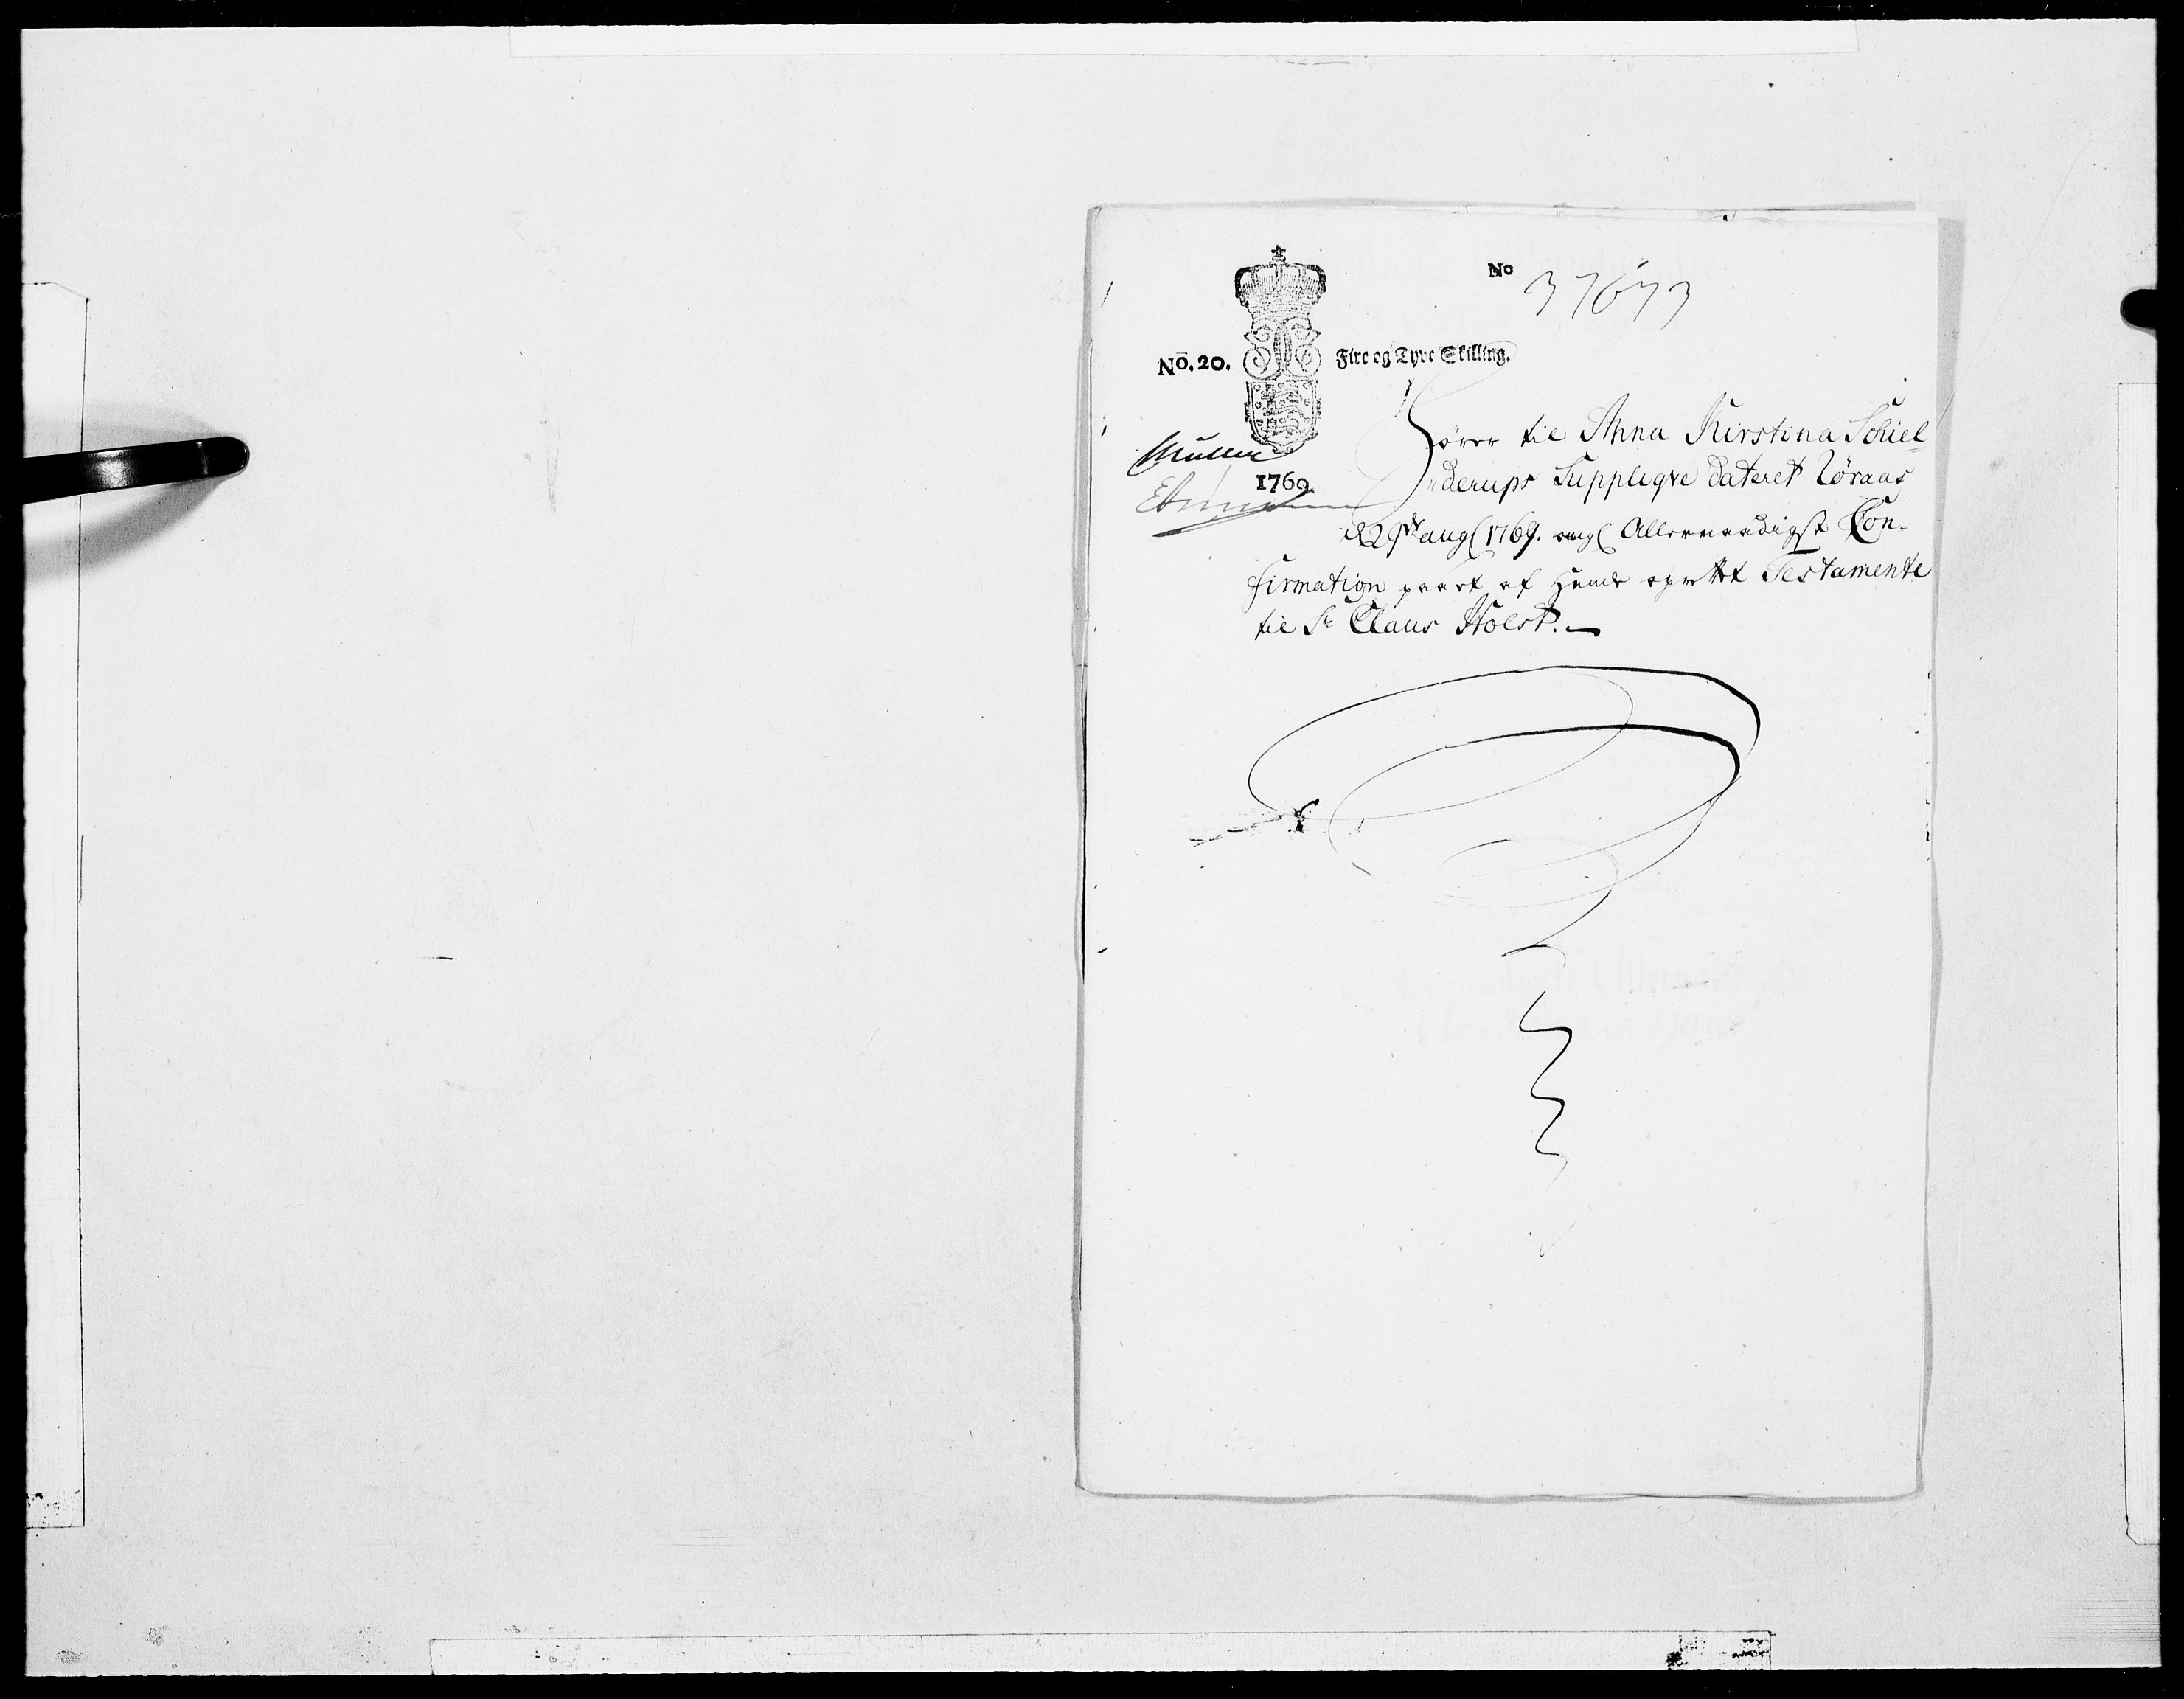 No 37673
No. 20. Fire og Tyve Skilling.
Müller
1769.
Hører til Anna Kirstina Schiel
derups Suppliqve dateret Röraas
d 29de aug 1769. ang Allernaadigst Con-
firmation paa et af hende oprettet Testamente
til Sr Claus Holst.